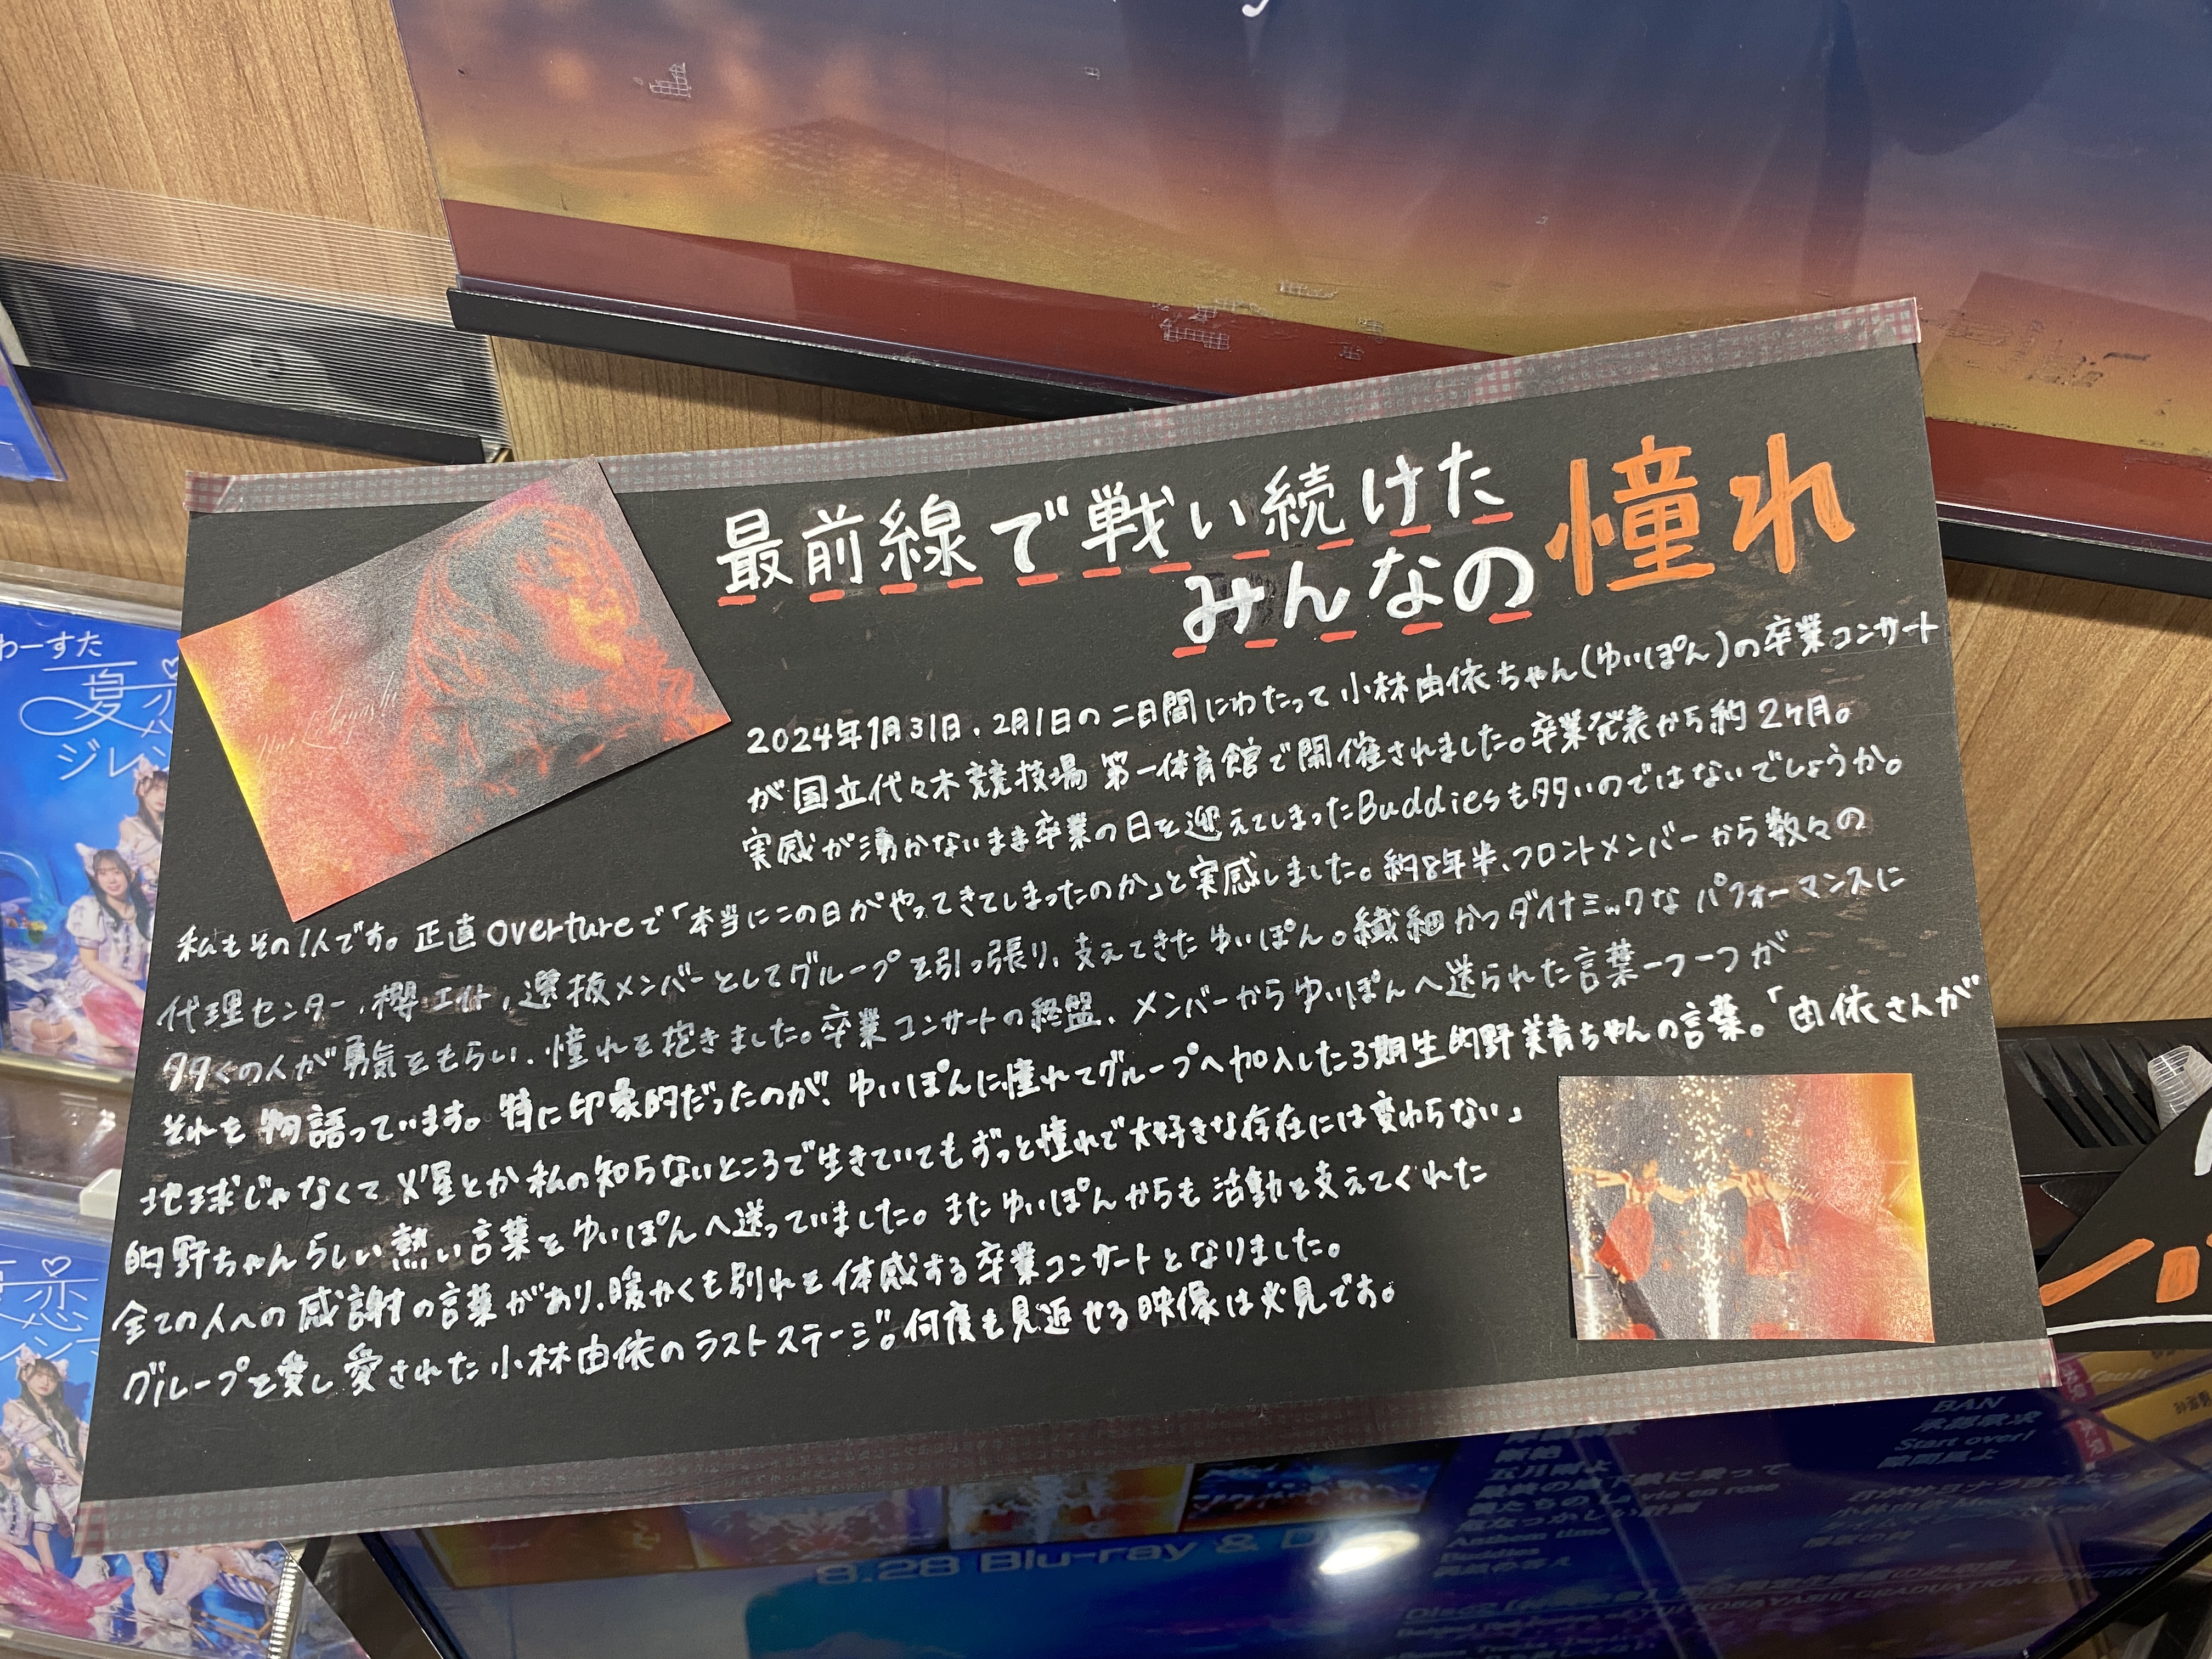 最前線で戦い続けた
みんなの憧れ
2024年1月31日、2月1日の二日間にわたって小林由依ちゃん(ゆいぽん)の卒業コンサート
が国立代々木競技場 第一体育館で開催されました。卒業発表から約2ヶ月。
実感が湧かないまま卒業の日を迎えてしまったBuddiesも多いのではないでしょうか。
私もその1人です。正直overtureで「本当にこの日がやってきてしまったのか」と実感しました。約8年半、フロントメンバーから数々の
代理センター、櫻エイト、選抜メンバーとしてグループを引っ張り、支えてきたゆいぽん。繊細かつダイナミックなパフォーマンスに
多くの人が勇気をもらい、憧れを抱きました。卒業コンサートの終盤、メンバーからゆいぽんへ送られた言葉一つ一つが
それを物語っています。特に印象的だったのが、ゆいぽんに憧れてグループへ加入した3期生的野美青ちゃんの言葉。「由依さんが
地球じゃなくて火星とか私の知らないところで生きていてもずっと憧れで大好きな存在には変わらない」
的野ちゃんらしい熱い言葉をゆいぽんへ送っていました。またゆいぽんからも活動を支えてくれた
全ての人への感謝の言葉があり、暖かくも別れを体感する卒業コンサートとなりました。
グループを愛し愛された小林由依のラストステージ。何度も見返せる映像は必見です。
わーすた
夏恋
ジレン
8.28 Blu-ray & D
BAN
承認欲求
Start over!
隙間風よ
五月雨よ
Anthem time
Buddies